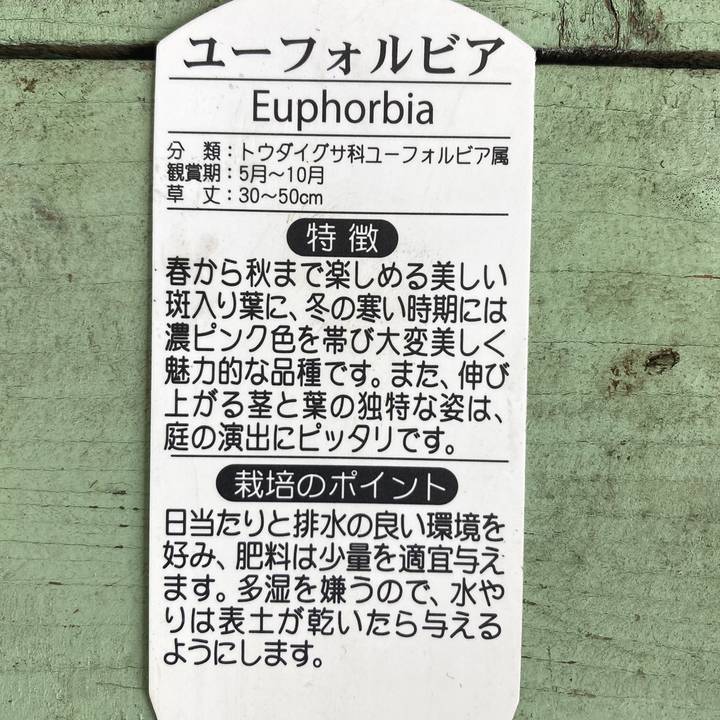 ユーフォルビア
Euphorbia
分　類：トウダイグサ科ユーフォルビア属
観賞期：5月～10月
草　丈：30～50cm
特 徴
春から秋まで楽しめる美しい
斑入り葉に、冬の寒い時期には
濃ピンク色を帯び大変美しく
魅力的な品種です。また、伸び
上がる茎と葉の独特な姿は、
庭の演出にピッタリです。
栽培のポイント
日当たりと排水の良い環境を
好み、肥料は少量を適宜与え
ます。多湿を嫌うので、水や
りは表土が乾いたら与える
ようにします。